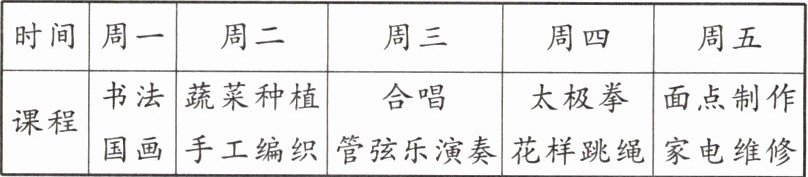 时间 周一 周二 周三 周四 周五
课程 书法 蔬菜种植 合唱 太极拳 面点制作
国画 手工编织 管弦乐演奏 花样跳绳 家电维修